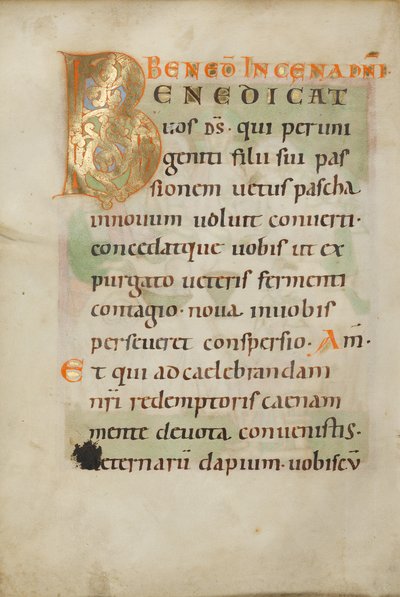 BENED̄ IN CENA DN̄I·
BENEDICAT
uos d̄s· qui per uni
geniti filii sui pas
sionem uetus pascha
innouum uoluit conuerti·
concedatque uobis ut ex
purgato ueteris fermenti
contagio· noua inuobis
perseueret conspersio. Am̄·
Et qui adcaelebrandam
nr̄i redemptoris caenam
mente deuota conuenistis·
aeternarū dapium· uobiscū